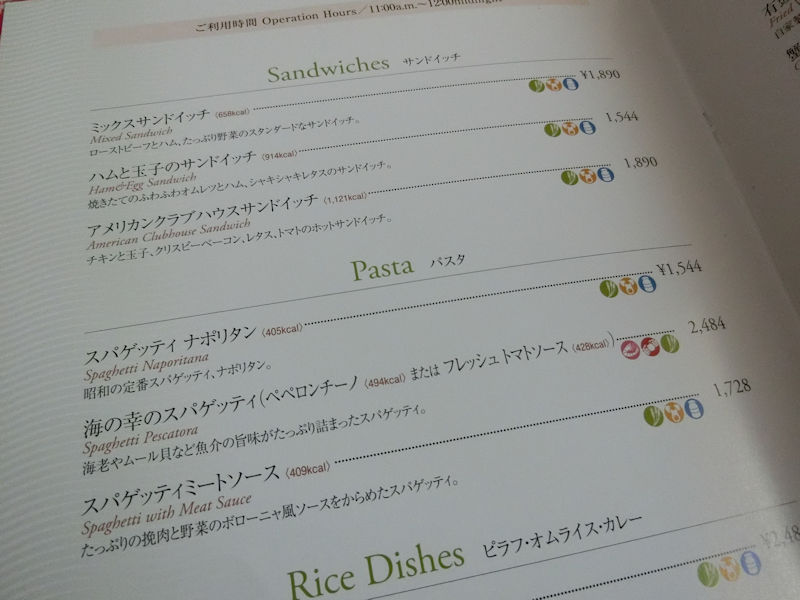 ご利用時間 Operation Hours／11:00a.m.～12:00midnight
Sandwiches サンドイッチ
ミックスサンドイッチ (658kcal) ¥1,890
Mixed Sandwich
ローストビーフとハム、たっぷり野菜のスタンダードなサンドイッチ。
ハムと玉子のサンドイッチ (914kcal) 1,544
Ham&Egg Sandwich
焼きたてのふわふわオムレツとハム、シャキシャキレタスのサンドイッチ。
アメリカンクラブハウスサンドイッチ (1,121kcal) 1,890
American Clubhouse Sandwich
チキンと玉子、クリスピーベーコン、レタス、トマトのホットサンドイッチ。
Pasta パスタ
スパゲッティ ナポリタン (405kcal) ¥1,544
Spaghetti Naporitana
昭和の定番スパゲッティ、ナポリタン。
海の幸のスパゲッティ(ペペロンチーノ (494kcal) または フレッシュトマトソース (428kcal)) 2,484
Spaghetti Pescatora
海老やムール貝など魚介の旨味がたっぷり詰まったスパゲッティ。
スパゲッティミートソース (409kcal) 1,728
Spaghetti with Meat Sauce
たっぷりの挽肉と野菜のボローニャ風ソースをからめたスパゲッティ。
Rice Dishes ピラフ・オムライス・カレー
Fried